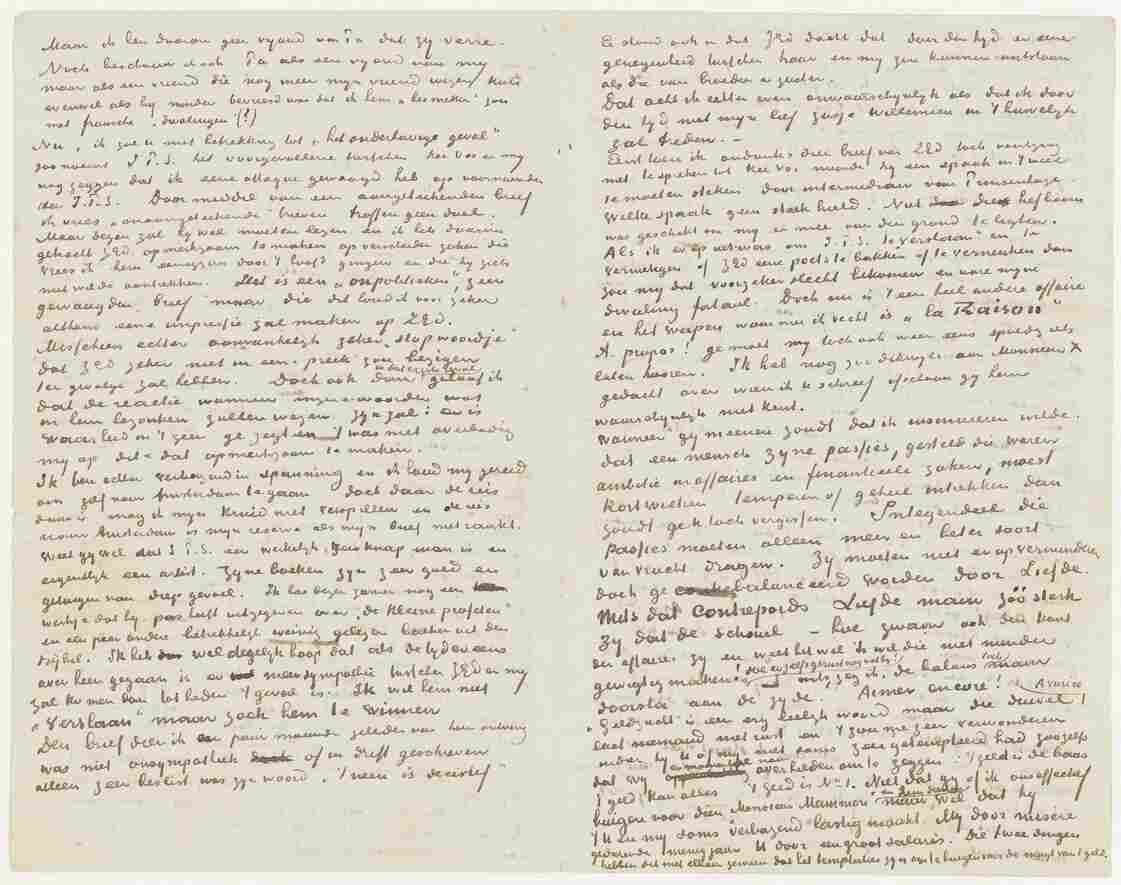 Maar ik ben daarom geen vyand van Pa dat zy verre.
Noch beschouw ik ook Pa als een vyand van my
maar als een vriend die nog meer myn vriend wezen kon
evenwel als hy minder bevreesd was dat ik hem „besmetten" zou
met fransche „dwalingen" (?)
Nu, ik zou u met betrekking tot „het onderhavige geval"
J.P.S. het voorgevallene tusschen Kee Vos en my
nog zeggen dat ik eene attaque gewaagd heb op voornoemden
J.P.S. Door middel van een aangeteekenden brief
ik vrees „onaangeteekende" brieven troffen geen doel.
Maar dezen zal hy wel moeten lezen en ik heb daarin
getracht ZEd. opmerkzaam te maken op verscheiden zaken die
vrees ik hem eenigszins door 't hoofd gingen en die hy zich
niet wilde aantrekken. Het is een „onpolitieken", zeer
gewaagden brief maar die dit houd ik voor zeker
althans eene impressie zal maken op ZEd.
Misschien echter aanvankelyk zeker stopwoordje
dat ZEd zeker niet in een preek zou bezigen
ten gevolge zal hebben. Doch ook dan geloof ik
dat de reactie wanneer myne woorden wat
in hem bezonken zullen wezen zyn zal: er is
waarheid in 't geen ge zegt en 't was niet overbodig
my op dit & dat opmerkzaam te maken.
Ik ben echter verbazend in spanning en ik houd my gereed
om zelf naar Amsterdam te gaan doch daar de reis
duur is mag ik myn kruid niet verspillen en de reis
naar Amsterdam is myn reserve als myn brief niet raakt.
Weet gy wel dat J.P.S. een werkelyk zeer knap man is en
eigentlyk een artist. Zyne boeken zyn zeer goed en
getuigen van diep gevoel. Ik las dezen zomer nog een
werkje dat hy pas heeft uitgegeven over „de kleine profeten"
en een paar andere betrekkelyk weinig gelezen boeken uit den
bybel. Ik heb wel degelyk hoop dat als de tyd er eens
over heen gegaan is er meer sympathie tusschen ZEd en my
zal komen dan tot heden 't geval is. Ik wil hem niet
„verslaan" maar zoek hem te winnen
Den brief dien ik een paar maanden geleden van hem ontving
was niet onsympathiek of in drift geschreven
alleen zeer beslist was zyn woord „'t neen is decisief"
Er stond ook in dat ZEd dacht dat door den tyd er eene
genegenheid tusschen haar en my zou kunnen ontstaan
als die van broeder & zuster.
Dat acht ik echter even onwaarschynlyk als dat ik door
den tyd met myn lief zusje Willemien in 't huwelyk
zal treden. –
Eerst toen ik ondanks dien brief van ZEd toch voortging
met te spreken tot Kee Vos meende hy een spaak in 't wiel
te moeten steken door intermediair van Prinsenhage.
Welke spaak geen steek hield. Noch dien hefboom
was geschikt om my er mee van den grond te ligten.
Als ik er op uit was om J.P.S. te „verslaan" en te
vernietigen of ZEd eene poets te bakken of te vernenken dan
zou my dat voorzeker slecht bekomen en ware myne
dwaling fataal. Doch nu is 't een heel andere affaire
en het wapen waarmee ik vecht is „la Raison"
A propos! ge moet my toch ook weer eens spoedig iets
laten hooren. Ik heb nog zoo dikwyls aan Monsieur X
gedacht over wien ik u schreef ofschoon gy hem
waarschynlyk niet kent.
Wanneer gy meenen zoudt dat ik insinueeren wilde
dat een mensch zyne passies, gesteld die waren
ambitie in affaires en financieele zaken, moest
kortwieken temperen of geheel intrekken dan
zoudt ge U toch vergissen. Integendeel die
passies moeten alleen meer en beter soort
van vrucht dragen. Zy moeten niet er op verminderen
doch gebalanceerd worden door Liefde.
Mits dat contrepoids Liefde maar zóó sterk
zy dat de schaal – hoe zwaar ook den kant
der affaires zy en weet het wel 'k wil die niet minder
gewigtig maken! doe er zelfs gerust nog wat by! – mits, zeg ik, de balans maar
doorsla aan de zyde. Aimer encore! Avance
„Geldzucht" is een erg leelyk woord maar die duivel
laat niemand met rust en 't zou me zeer verwonderen
indien hy U of my niet soms zeer getenteerd had zoozelfs
dat wy overhelden om te zeggen: 't geld is de baas
't geld kan alles 't geld is No 1. Niet dat gy of ik ons effectief
buigen voor dien Monsieur Mammon en hem dienen maar wel dat hy
't U en my soms verbazend lastig maakt. My door misère
gedurende menig jaar U door een groot salaris. Die twee dingen
hebben dit met elkaar gemeen dat het temptaties zyn om te buigen voor de magt van 't geld.